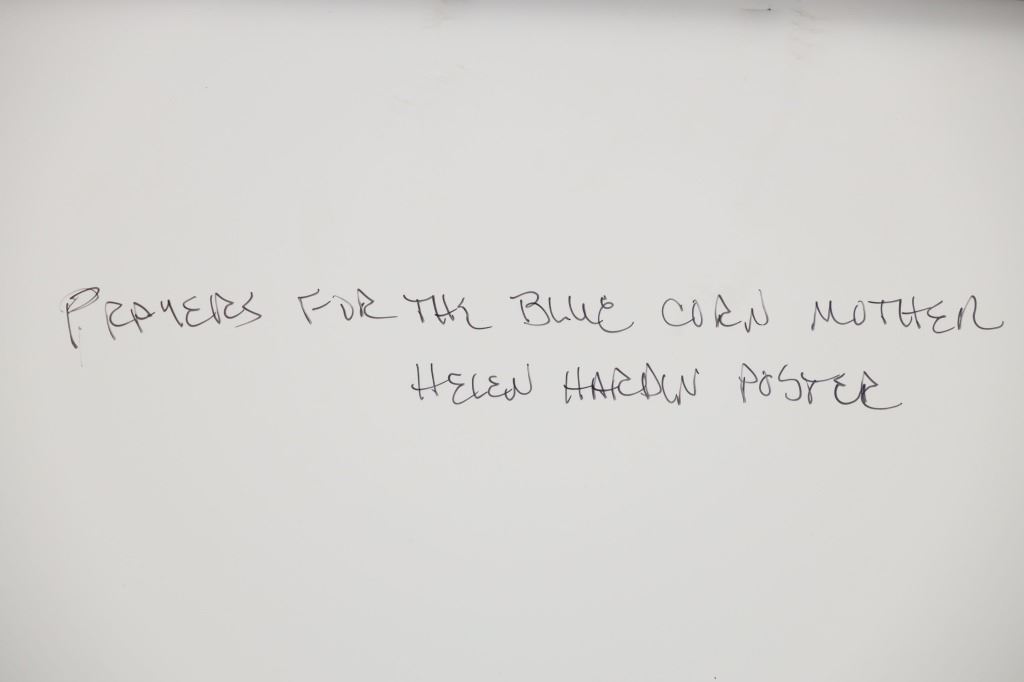 PRAYERS FOR THE BLUE CORN MOTHER
HELEN HARDIN POSTER